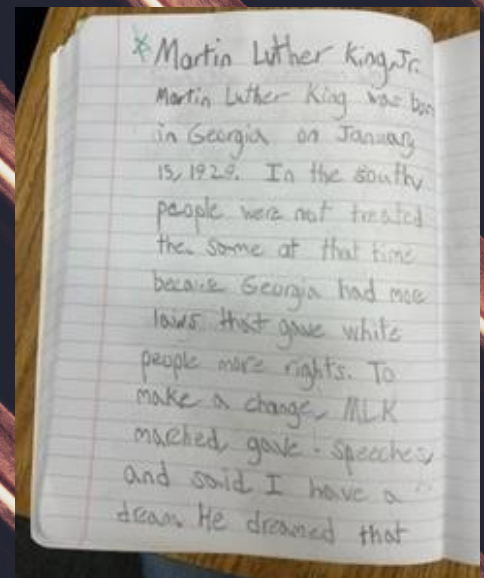 * Martin Luther King, Jr.
Martin Luther King was born
in Georgia on January
15, 1929. In the south,
people were not treated
the same at that time
because Georgia had more
laws that gave white
people more rights. To
make a change, MLK
marched, gave speeches,
and said I have a
dream. He dreamed that